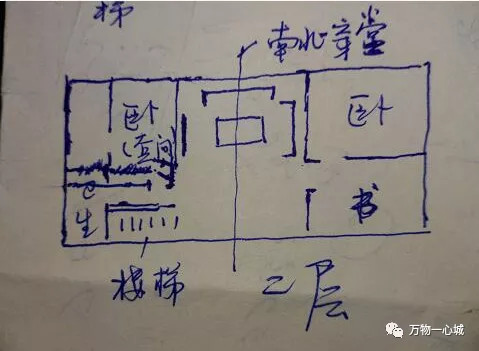 梯
南北穿堂
卧
(套间)
卧
卫
生
书
楼梯
二层
万物一心城